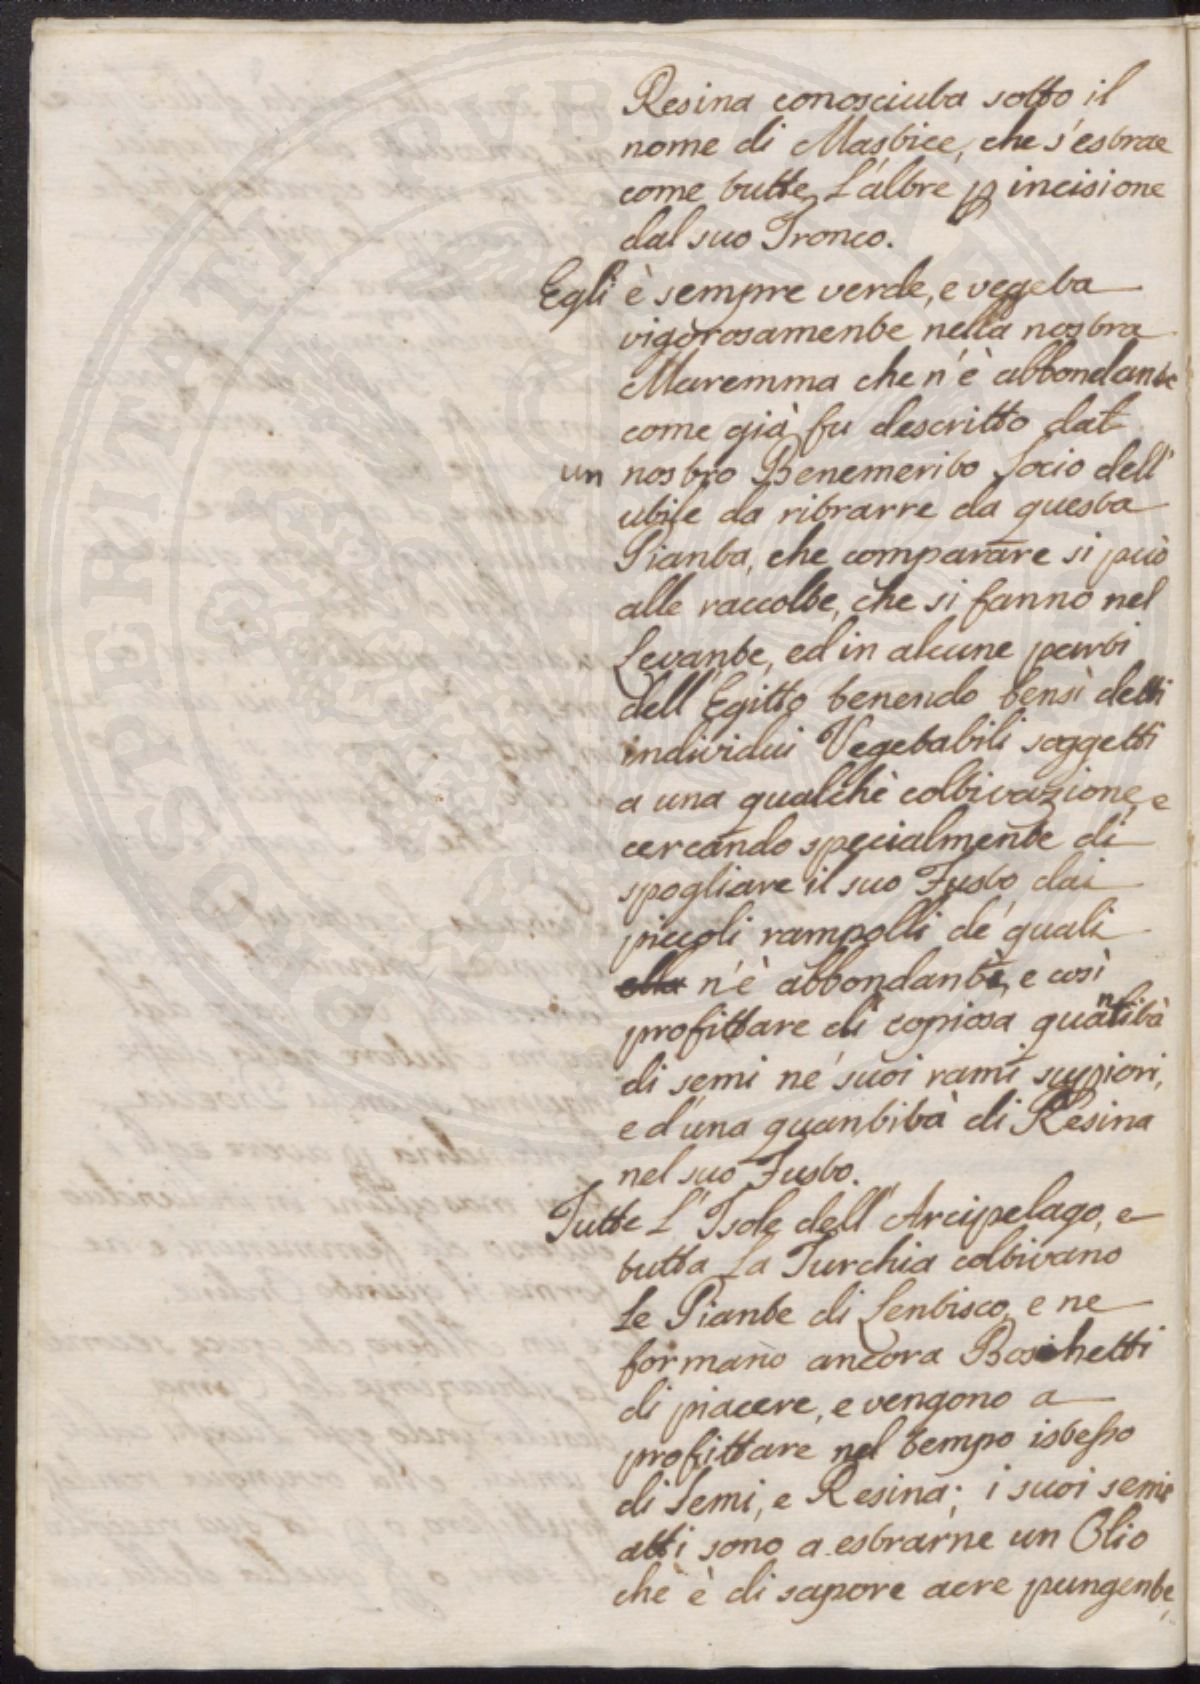 Resina conosciuta sotto il
nome di Mastice, che s'estrae
come tutte l'altre p incisione
dal suo Tronco.
Egli è sempre verde, e vegeta
vigorosamente nella nostra
Maremma che n'è abbondante
come già fu descritto dal
un nostro Benemerito Socio dell'
utile da ritrarre da questa
Pianta, che comparare si può
alle raccolte, che si fanno nel
Levante, ed in alcune parti
dell'Egitto tenendo bensì detti
individui Vegetabili soggetti
a una qualchè coltivazione, e
cercando specialmente di
spogliare il suo Fusto dai
piccoli rampolli de' quali
ella n'è abbondante, e così
profittare di copiosa quantità
di semi ne' suoi rami supiori,
e d'una quantità di Resina
nel suo Fusto.
Tutte l'Isole dell'Arcipelago, e
tutta La Turchia coltivano
Le Piante di Lentisco, e ne
formano ancora Boschetti
di piacere, e vengono a
profittare nel tempo istesso
di Semi, e Resina; i suoi semi
atti sono a estrarne un Olio
chè è di sapore acre pungente,
PROSPERITATI PVBLICAE